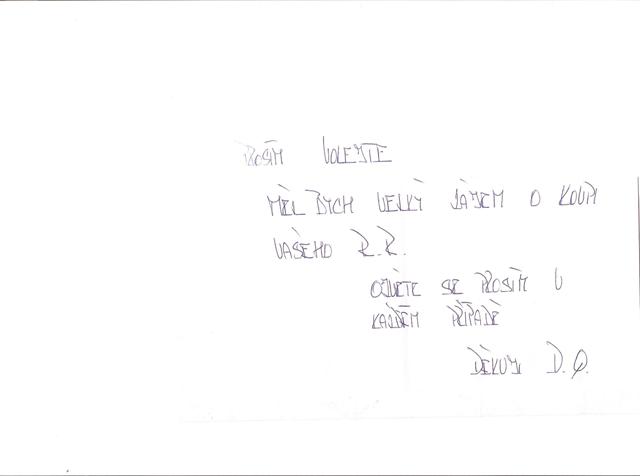 PROSÍM VOLEJTE
MĚL BYCH VELKÝ ZÁJEM O KOUPI
VAŠEHO R.R.
OZVĚTE SE PROSÍM V
KAŽDÉM PŘÍPADĚ
DĚKUJI D.Q.